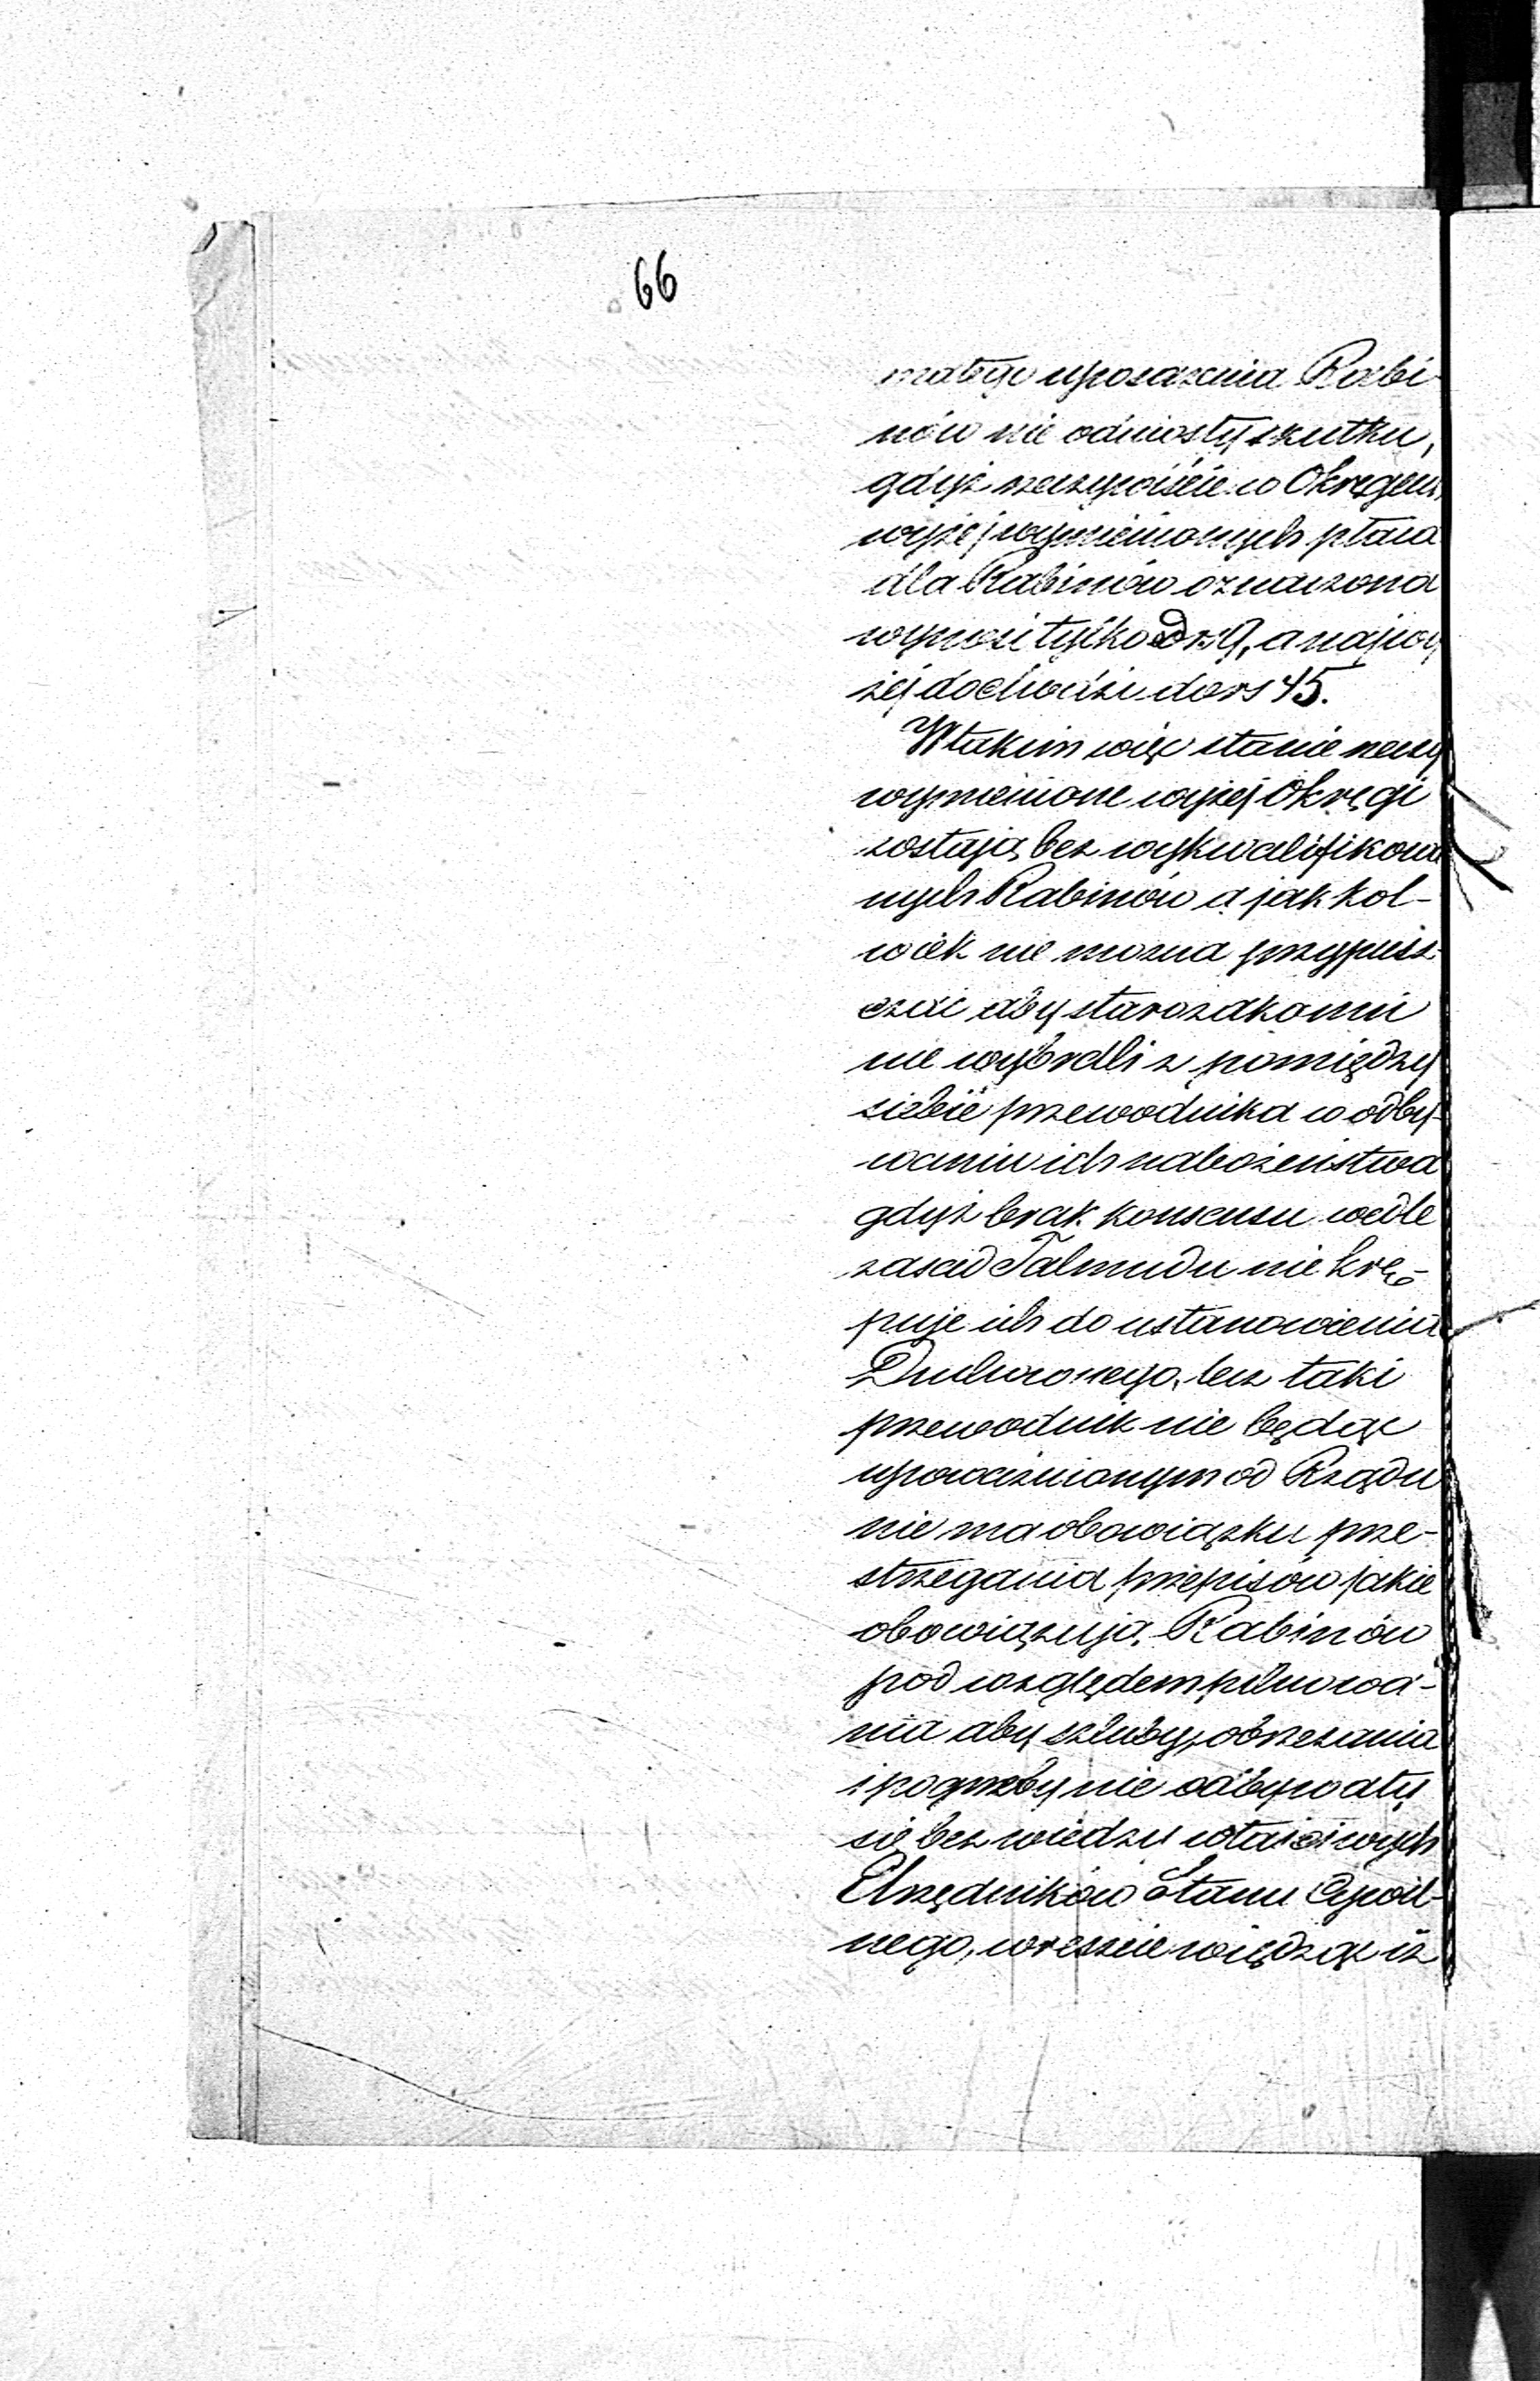 66
małego uposażenia Rabi-
nów nie odniosły skutku,
gdyż rzeczywiście w Okręgach
wyżej wymienionych płaca
dla Rabinów oznaczona
wynosi tylko od rs 9, a najwy
żej dochodzi do rs 45.
W takim więc stanie rzeczy
wymienione wyżej Okręgi
zostają bez wykwalifikowa
nych Rabinów a jak kol-
wiek nie można przypusz-
czać aby starozakonni
nie wybrali z pomiędzy
siebie przewodnika w odby-
waniu ich nabożeństwa
gdyż brak konsensu wedle
zasad Talmudu nie krę-
puje ich do ustanowienia
Duchownego, lecz taki
przewodnik nie będąc
upoważnionym od Rządu
nie ma obowiązku prze-
strzegania przepisów jakie
obowiązują Rabinów
pod względem pilnowa-
nia aby szluby, obrzezania
i pogrzeby nie odbywały
się bez wiedzy właściwych
Urzędników Stanu Cywil-
nego, wreszcie wiedząc iż